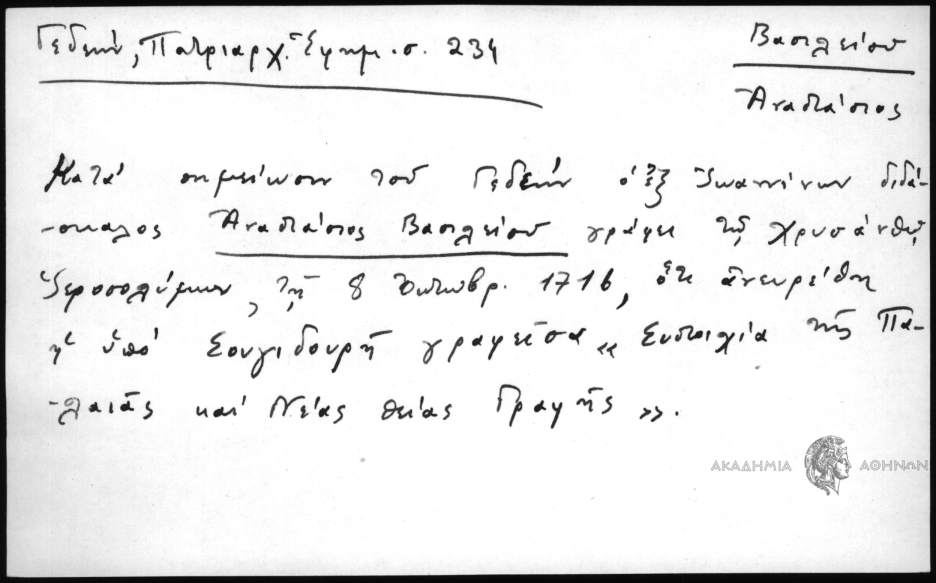 Γεδεών, Πατριαρχ. Ἐφημ. σ. 234
Βασιλείου
Ἀναστάσιος
Κατά σημείωσιν τοῦ Γεδεών ὁ ἐξ Ἰωαννίνων διδά-
-σκαλος Ἀναστάσιος Βασιλείου γράφει τῷ Χρυσάνθῳ
Ἱεροσολύμων, τῇ 8 Ὀκτωβρ. 1716, ὅτι ἀνευρέθη
ἡ ὑπό Σουγδουρῆ γραφεῖσα « Συστοιχία τῆς Πα-
-λαιᾶς καί Νέας θείας Γραφῆς ».
ΑΚΑΔΗΜΙΑ ΑΘΗΝΩΝ